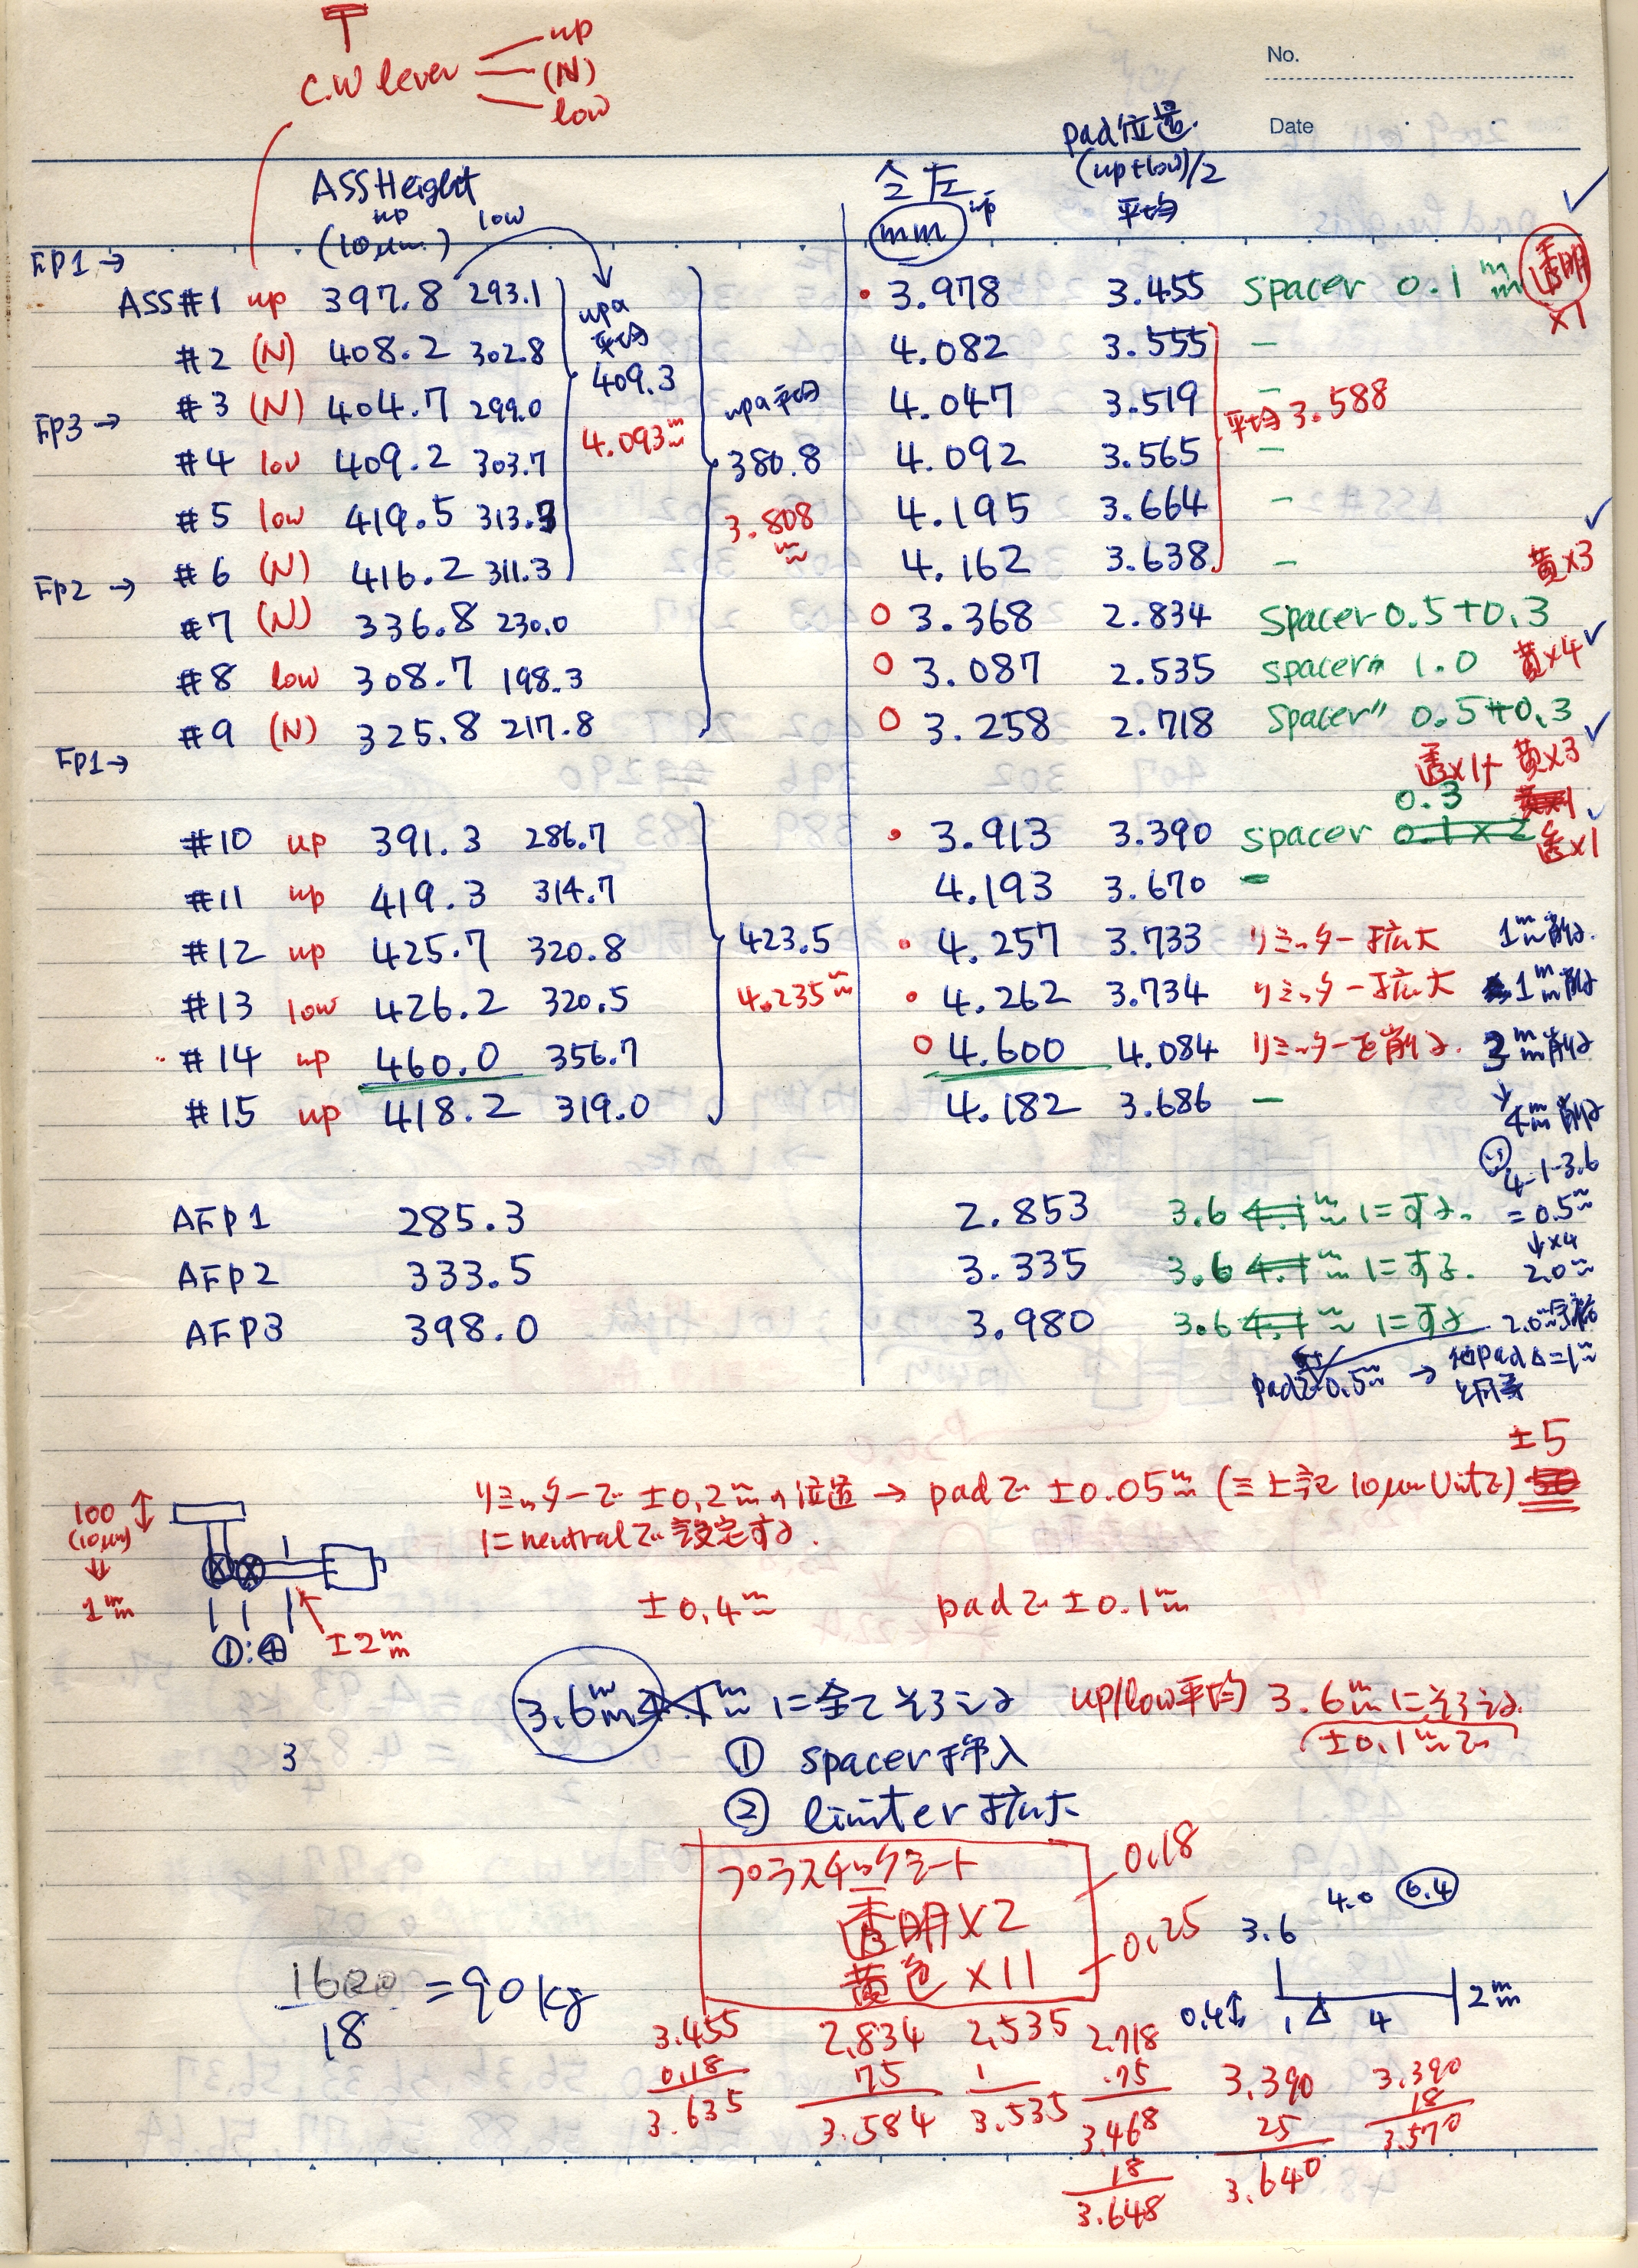 No.
Date
T
C.W lever
up
(N)
low
ASS Height
up low
(10μm)
全圧 up
mm
pad位置
(up+low)/2
平均
FP1→
ASS#1 up 397.8 293.1 3.978 3.455 spacer 0.1mm 透明×1
#2 (N) 408.2 302.8 4.082 3.555 −
#3 (N) 404.7 299.0 4.047 3.519 −
FP3→
#4 low 409.2 303.7 4.092 3.565 −
#5 low 419.5 313.3 4.195 3.664 −
#6 (N) 416.2 311.3 4.162 3.638 −
upの平均
409.3
4.093mm
upの平均
380.8
3.808mm
平均 3.588
FP2→
黄×3
#7 (N) 336.8 230.0 ○ 3.368 2.834 spacer 0.5+0.3
#8 low 308.7 198.3 ○ 3.087 2.535 spacer 1.0 黄×4
#9 (N) 325.8 217.8 ○ 3.258 2.718 spacer 0.5+0.3
FP1→
透×1+黄×3
0.3 黄×1
#10 up 391.3 286.7 3.913 3.390 spacer 0.1×2 透×1
#11 up 419.3 314.7 4.193 3.670 −
#12 up 425.7 320.8 4.257 3.733 リミッター拡大 1mm削る.
#13 low 426.2 320.5 4.262 3.734 リミッター拡大 1mm削る
#14 up 460.0 356.7 ○ 4.600 4.084 リミッターを削る. 3mm削る
#15 up 418.2 319.0 4.182 3.686 −
423.5
4.235mm
↓
4mm削る
4-1-3.6
= 0.5mm
↓×4
2.0mm
AFP1 285.3 2.853 3.6 4.1mmにする.
AFP2 333.5 3.335 3.6 4.1mmにする.
AFP3 398.0 3.980 3.6 4.1mmにする
padで0.5mm → 他padΔ=1mm
と同等
±5
リミッターで ±0.2mmの位置 → padで ±0.05mm (≡上記10μm Unitで) 50
に neutralで設定する.
±0.4mm padで ±0.1mm
100
(10μm)
↓
1mm
①:④
±2mm
3.6mm 4.1mm に全てそろえる
up/low平均 3.6mmにそろえる.
(±0.1mmで)
3
① spacer挿入
② limiter 拡大
プラスチックシート
透明×2 0.18
黄色×11 0.25
1620
18
=90kg
4.0 0.4
3.6
0.4↕ 1 Δ 4 2mm
3.455
0.18
3.635
2.834
75
3.584
2.535
1
3.535
2.718
.75
3.468
18
3.648
3.390
25
3.640
3.390
18
3.570